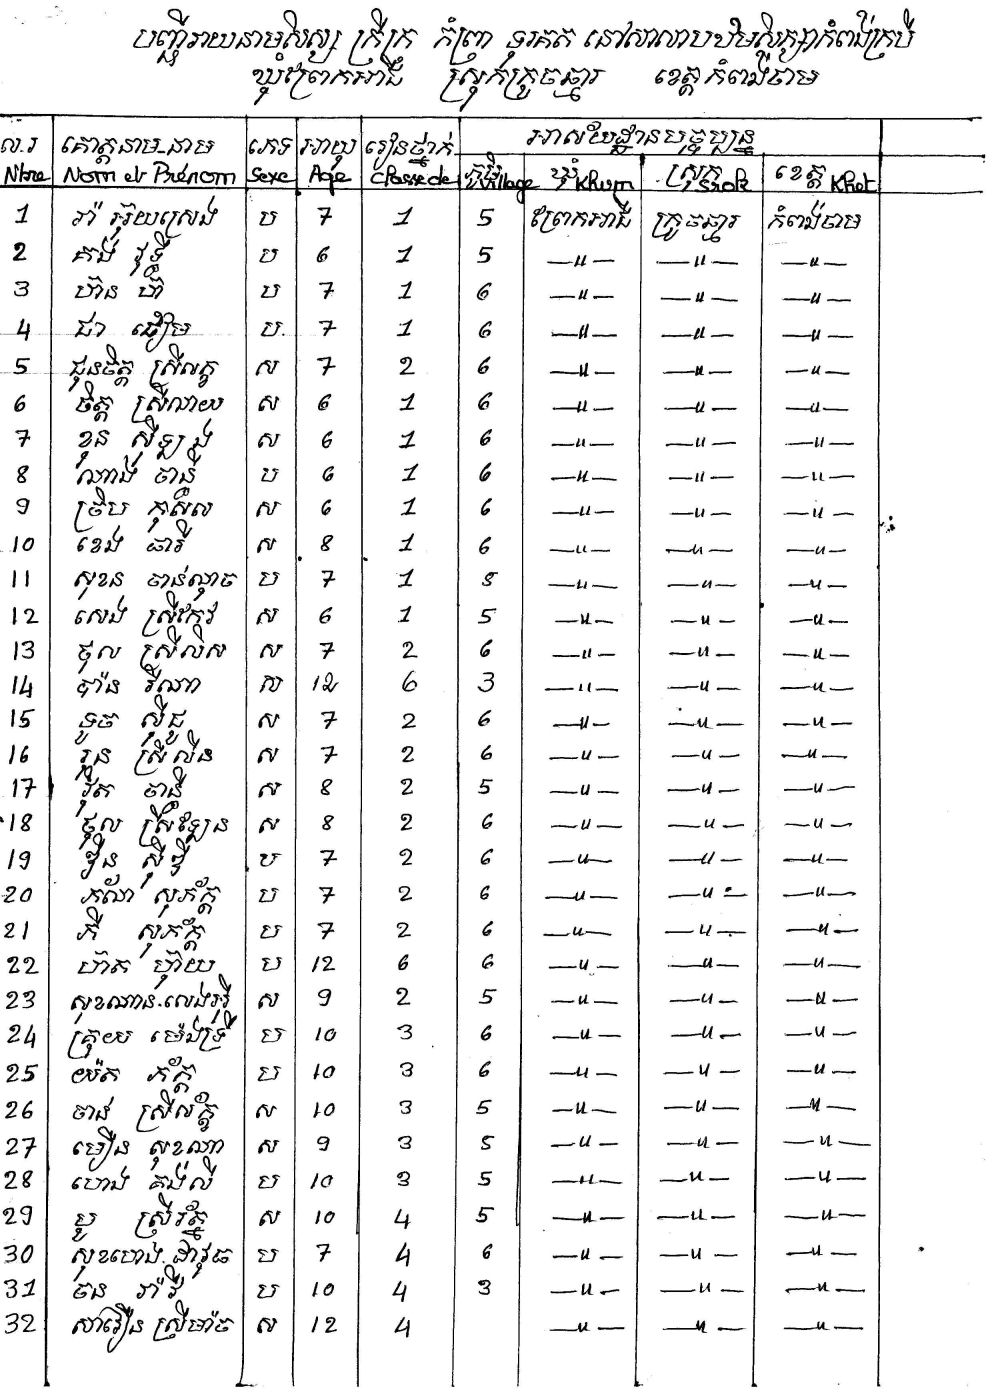 បញ្ជីរាយនាមសិស្ស ក្រីក្រ កំព្រា ទុរគត នៅសាលាបឋមសិក្សាកំពង់ក្របី
ឃុំព្រែកអាជី ស្រុកក្រូចឆ្មារ ខេត្តកំពង់ចាម
ល.រ គោត្តនាម.នាម ភេទ អាយុ រៀនថ្នាក់ អាស័យដ្ឋានបច្ចុប្បន្ន
Nbre Nom et Prénom Sexe Age Classe de ភូមិ Village ឃុំ Khum ស្រុក Srok ខេត្ត Khet
1 រ៉ា អ៊ុយស្រេង ប 7 1 5 ព្រែកអាជី ក្រូចឆ្មារ កំពង់ចាម
2 គង់ វុទ្ធី ប 6 1 5 —〃— —〃— —〃—
3 ប ៧ 1 6 —〃— —〃— —〃—
4 ជា ប. 7 1 6 —〃— —〃— —〃—
5 ជួនចិត្ត ស្រីលក្ខ ស 7 2 6 —〃— —〃— —〃—
6 ចិត្ត ស្រីណាយ ស 6 1 6 —〃— —〃— —〃—
7 ខុន ស៊ីឡុង ស 6 1 6 —〃— —〃— —〃—
8 ណាង ចាន្នី ប 6 1 6 —〃— —〃— —〃—
9 ច្រឹប កុសល ស 6 1 6 —〃— —〃— —〃—
10 ខេង ឆារី ស 8 1 6 —〃— —〃— —〃—
11 សុខន ចាន់ណុច ប 7 1 5 —〃— —〃— —〃—
12 សេង ស្រីកែវ ស 6 1 5 —〃— —〃— —〃—
13 ថុល ស្រីលិស ស 7 2 6 —〃— —〃— —〃—
14 ប៉ាន រីណា ស 12 6 3 —〃— —〃— —〃—
15 ទូច ស៊ីជូ ស 7 2 6 —〃— —〃— —〃—
16 រួន ស្រីលីន ស 7 2 6 —〃— —〃— —〃—
17 រ៉ុត ចាន្នី ស 8 2 5 —〃— —〃— —〃—
18 ថុល ស្រីឡែន ស 8 2 6 —〃— —〃— —〃—
19 ប 7 2 6 —〃— —〃— —〃—
20 ភណ៌ា សុភ័ក្ត្រ ប 7 2 6 —〃— —〃— —〃—
21 ភី សុភ័ក្ត្រ ប 7 2 6 —〃— —〃— —〃—
22 ហ៊ាត ហ៊ុយ ប 12 6 6 —〃— —〃— —〃—
23 សុខណាន.លេងអ៊ូ ស 9 2 5 —〃— —〃— —〃—
24 គ្រុយ ម៉េងទ្រី ប 10 3 6 —〃— —〃— —〃—
25 យ៉ត ភ័ក្ត្រ ប 10 3 6 —〃— —〃— —〃—
26 ចាន់ ស្រីល័ក្ខ ស 10 3 5 —〃— —〃— —〃—
27 មឿន សុខណា ស 9 3 5 —〃— —〃— —〃—
28 ហេង គង់លី ប 10 3 5 —〃— —〃— —〃—
29 ប្អូ ស្រីរ័ត្ន ស 10 4 5 —〃— —〃— —〃—
30 សុខហេង.ដាវុធ ប 7 4 6 —〃— —〃— —〃—
31 ចន រ៉ាវី ប 10 4 3 —〃— —〃— —〃—
32 សាវឿន ស្រីម៉ាច ស 12 4 —〃— —〃— —〃—